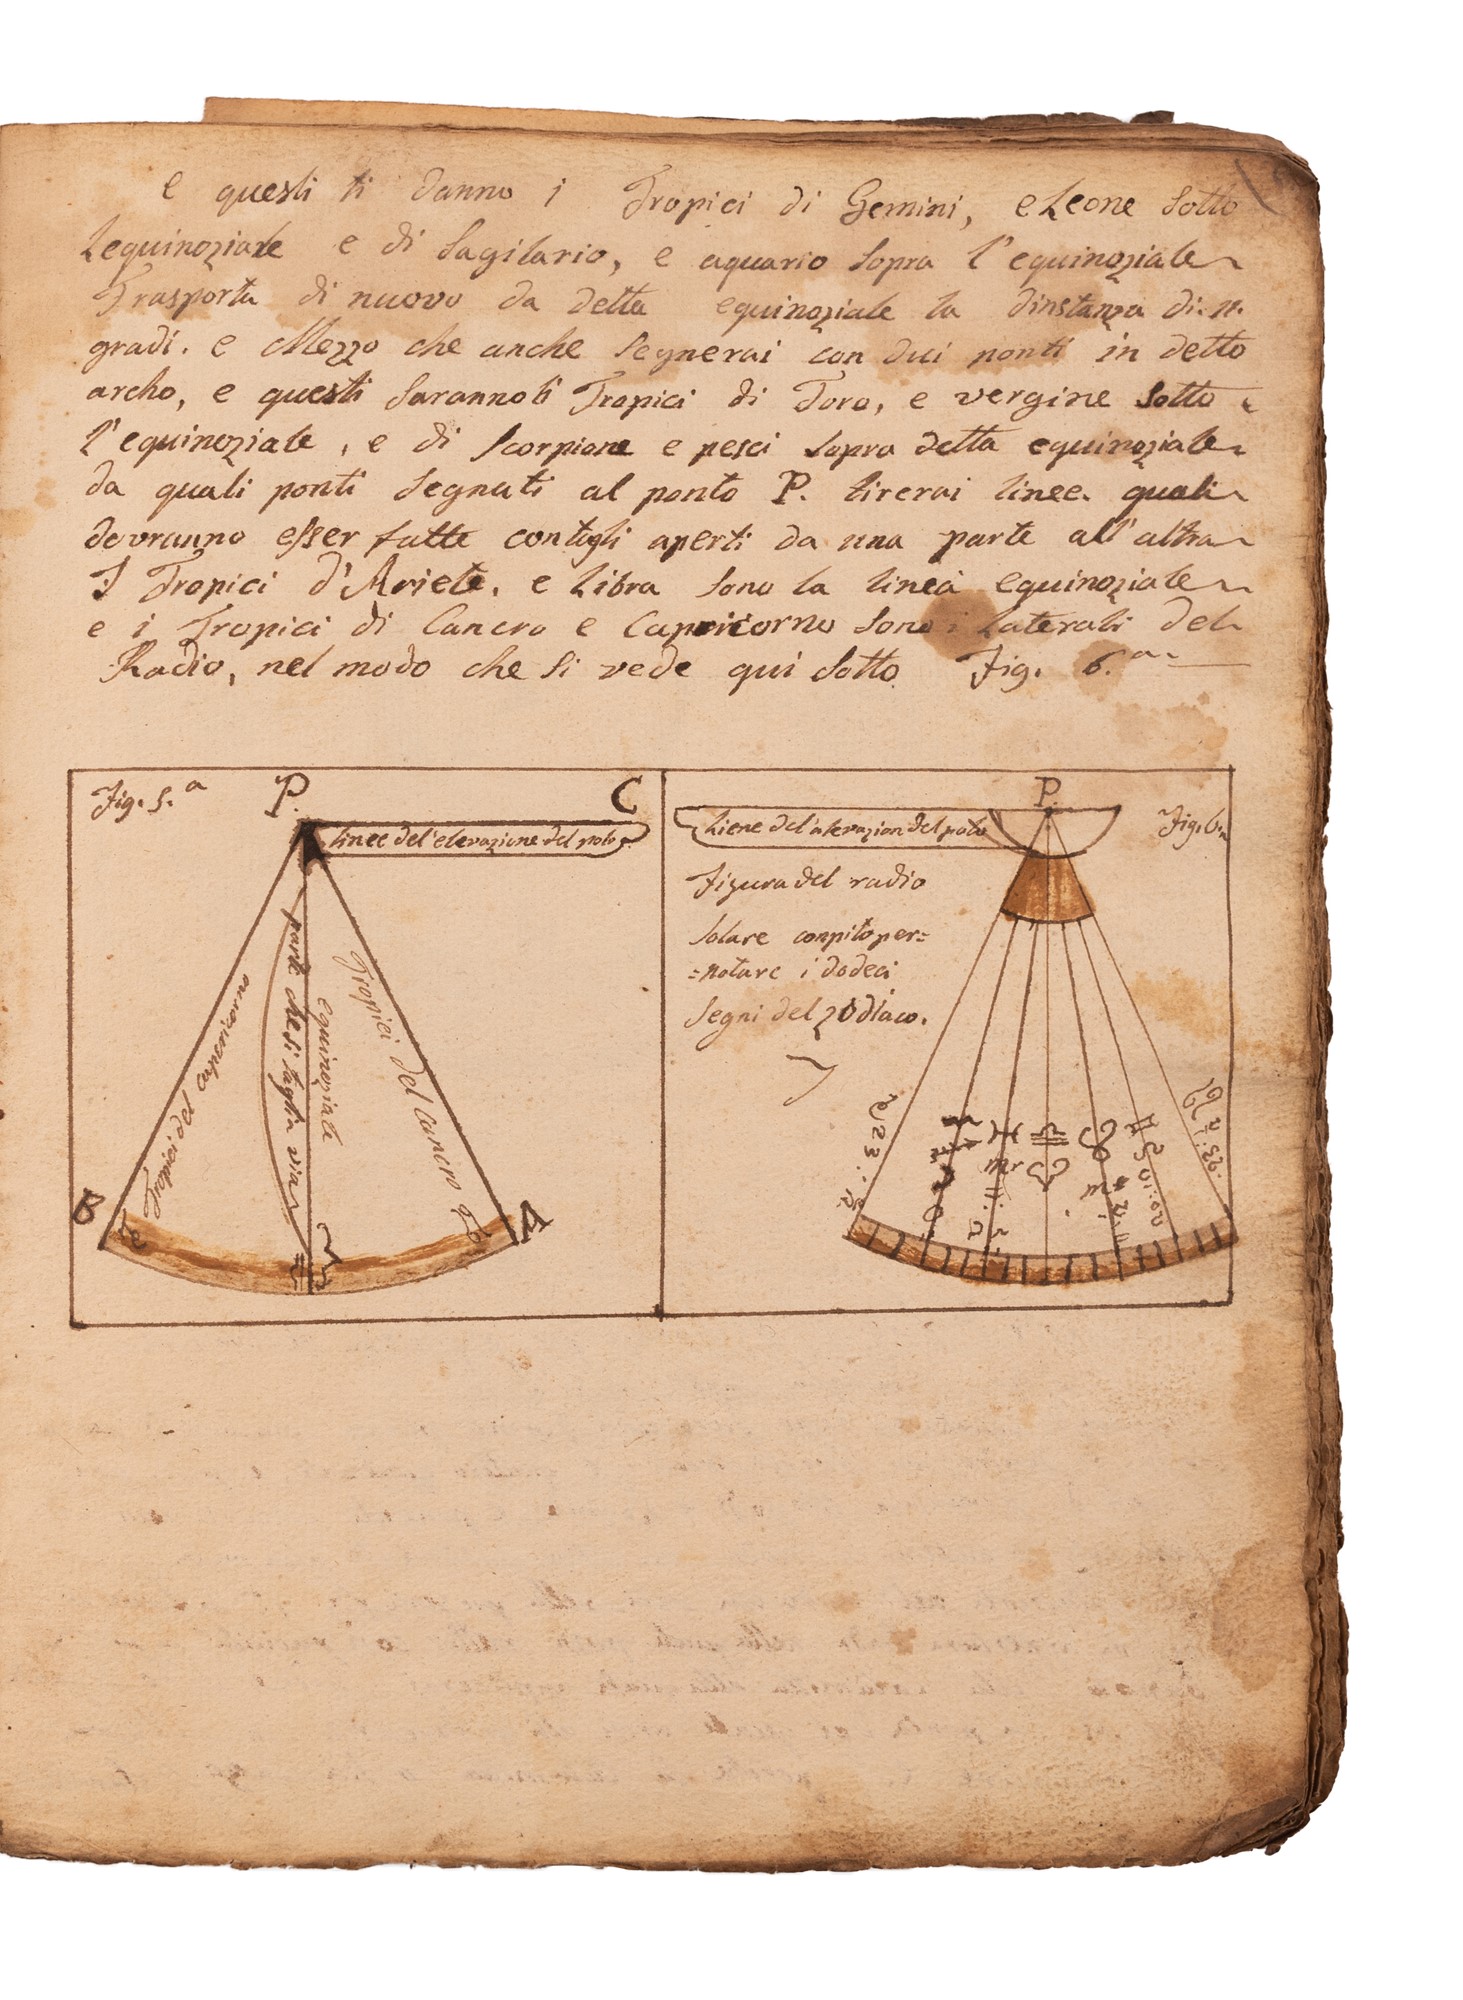 e questi ti danno i Tropici di Gemini, e Leone sotto
Lequinoziale e di Sagitario, e aquario sopra l'equinoziale
Trasporta di nuovo da detta equinoziale la dinstanza di. 11.
gradi. e Mezzo che anche segnerai con dui ponti in detto
archo, e questi saranno li Tropici di Toro, e vergine sotto
l'equinoziale, e di Scorpione e pesci sopra detta equinoziale
da quali ponti segnati al ponto P. tirerai linee. quali
dovranno esser fatte con tagli aperti da una parte all'altra
I Tropici d'Ariete, e Libra sono la linea equinoziale
e i Tropici di Cancro e Capricorno sono i Laterali del
Radio, nel modo che si vede qui sotto Fig. 6.a
Fig. 5.a P. C
linee del'elevazione del polo
parte che si taglia via
equinoziale
Tropici del capericorno
Tropici del Cancro
B ♎ A
P. Fig. 6.a
Liene del'alevazion del polo
Figura del radio
solare conpito per=
=notare i dodeci
segni del zodiaco.
♓ ♎